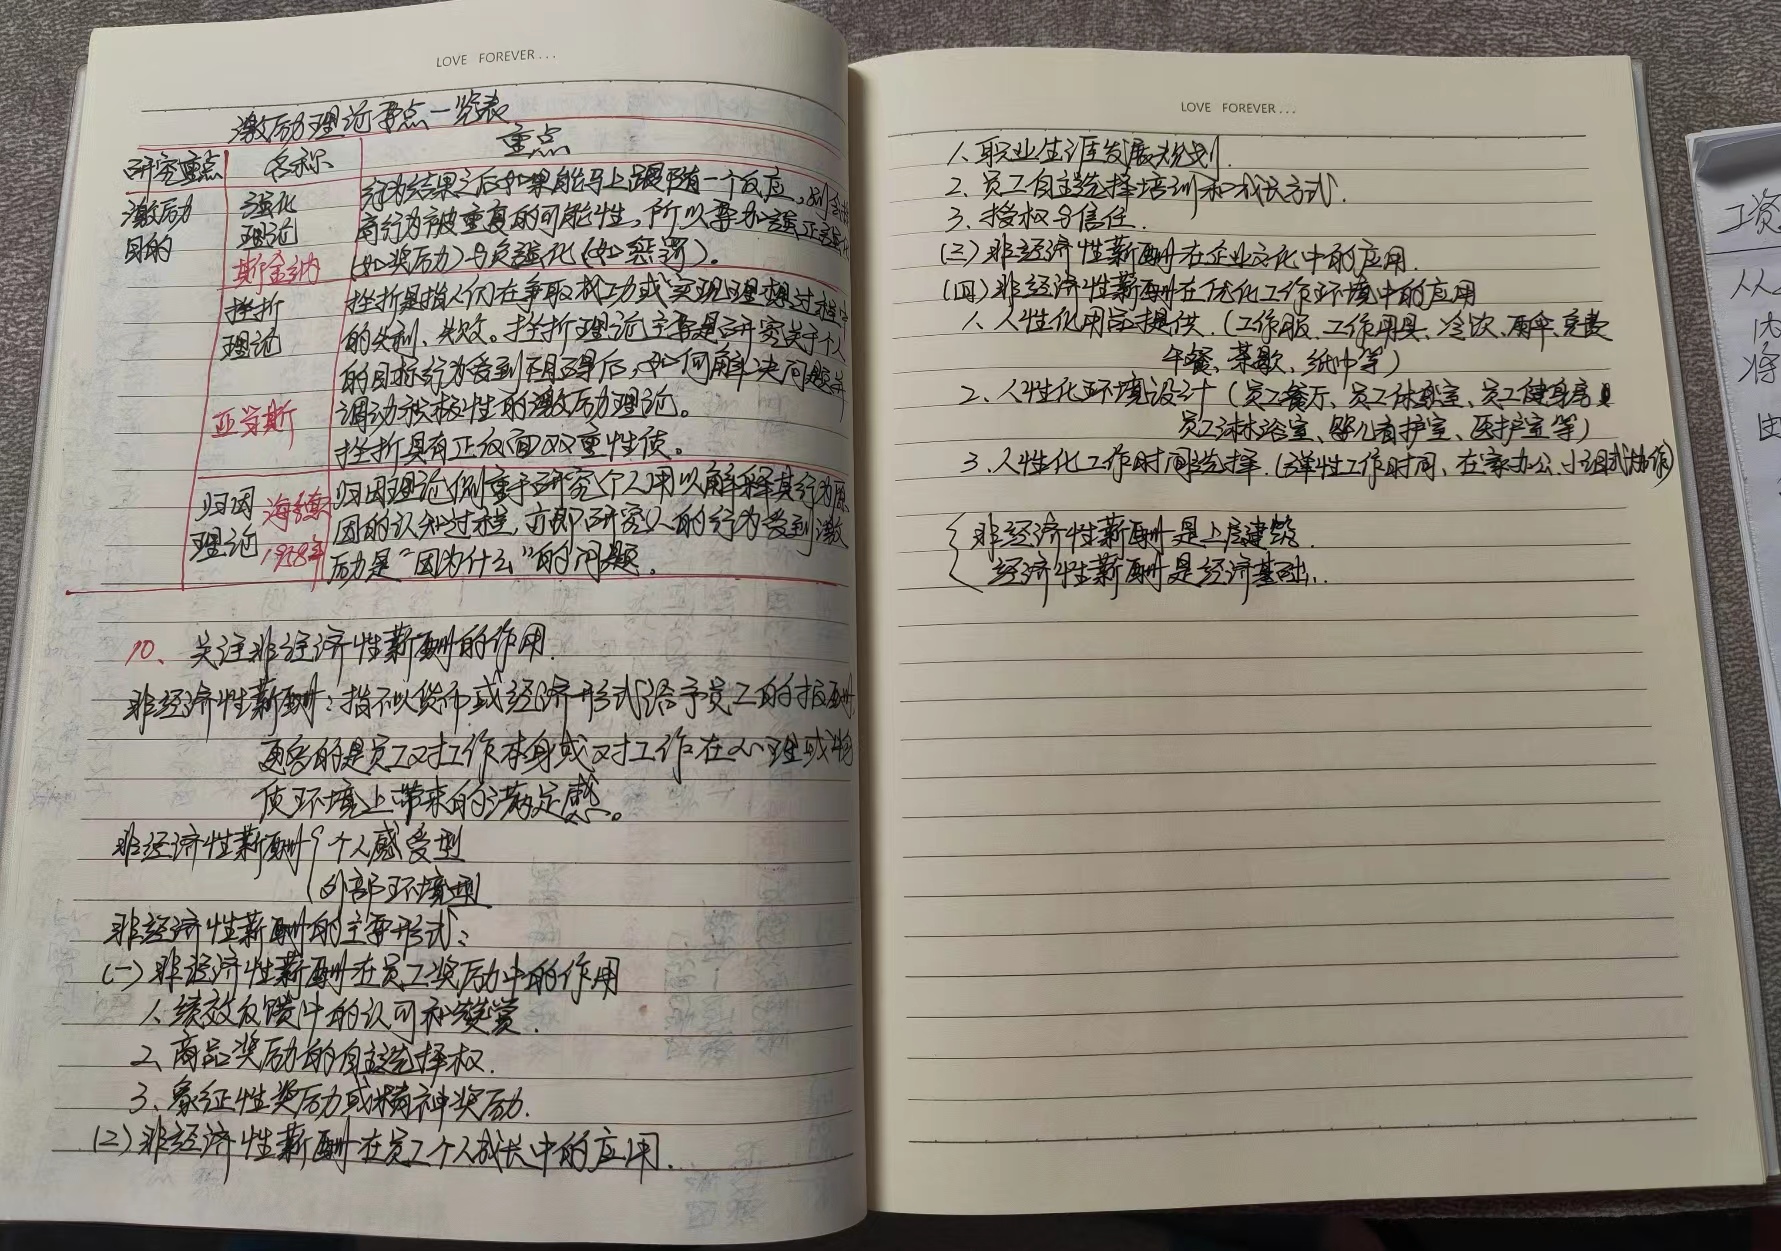 LOVE FOREVER...
激励理论要点一览表
研究重点 名称 重点
激励目的
强化理论
斯金纳
行为结果之后如果能马上跟随有一个反应，则会
高行为被重复的可能性，所以要加强正强化
(如奖励)与负强化(如惩罚)。
挫折理论
亚当斯
挫折是指人们在争取成功或实现理想过程中
的失利、失败。挫折理论主要是研究关于个人
的目标行为受到阻碍后，如何解决问题并
调动积极性的激励理论。
挫折具有正反面双重性质。
归因理论
海德
1958年
归因理论侧重于研究个人用以解释其行为原
因的认知过程，亦即研究人的行为受到激
励是“因为什么”的问题。
10、关注非经济性薪酬的作用.
非经济性薪酬：指不以货币或经济形式给予员工的报酬
更多的是员工对工作本身或对工作在心理或物
质环境上带来的满足感。
非经济性薪酬{个人感受型
外部环境型
非经济性薪酬的主要形式：
(一)非经济性薪酬在员工奖励中的作用
1、绩效反馈中的认可和赞赏.
2、商品奖励的自主选择权.
3、象征性奖励或精神奖励.
(二)非经济性薪酬在员工个人成长中的应用.
LOVE FOREVER...
1、职业生涯发展规划.
2、员工自主选择培训和成长方式.
3、授权与信任.
(三)非经济性薪酬在企业文化中的应用.
(四)非经济性薪酬在优化工作环境中的应用
1、人性化用品提供.(工作服、工作用具、冷饮、雨伞、免费
午餐、茶歇、纸巾等)
2、人性化环境设计(员工餐厅、员工休息室、员工健身房
员工沐浴室、婴儿看护室、医护室等)
3、人性化工作时间选择.(弹性工作时间、在家办公、小组式协作)
{非经济性薪酬是上层建筑.
经济性薪酬是经济基础.
工资